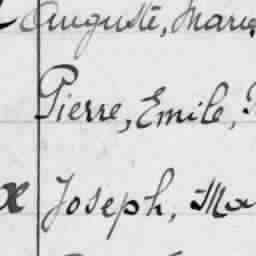 Auguste, Marie
Pierre, Emile,
x Joseph, Ma